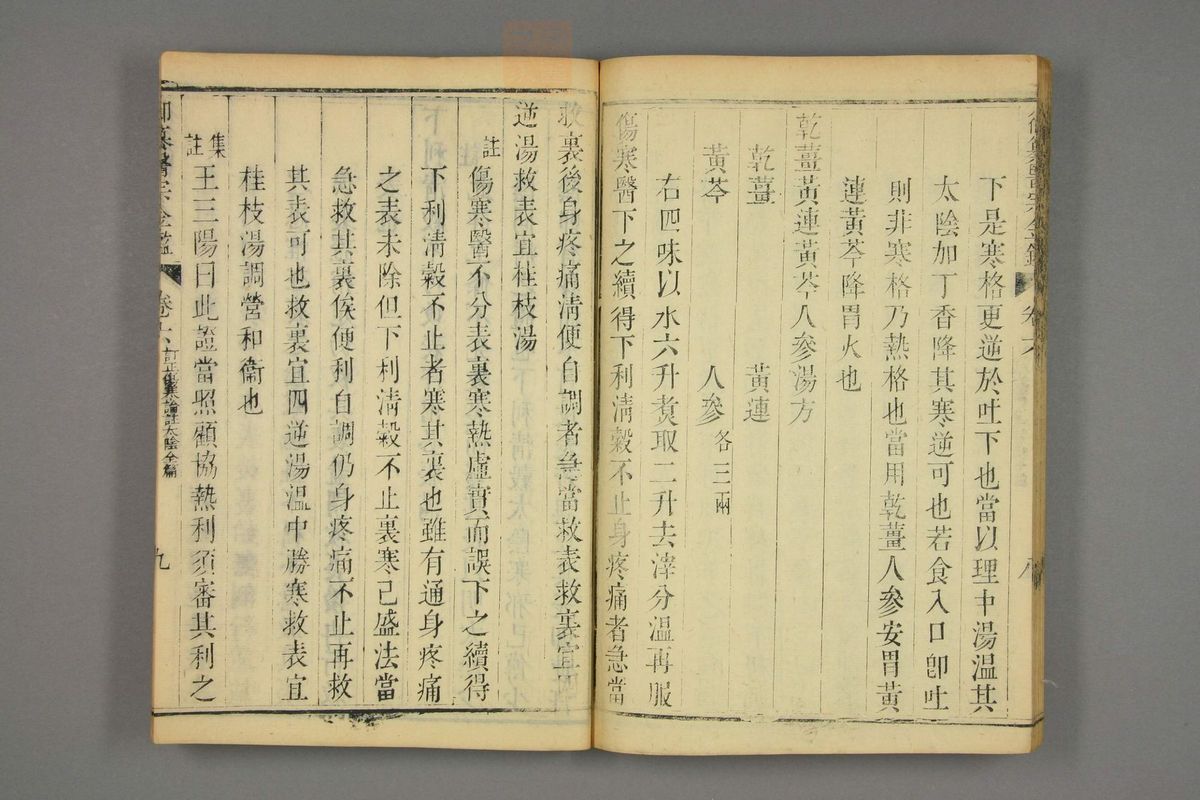 下是寒格更逆於吐下也當以理中湯溫其
太陰加丁香降其寒逆可也若食入口卽吐
則非寒格乃熱格也當用乾薑人參安胃黃
連黃芩降胃火也
乾薑黃連黃芩人參湯方
乾薑 黃連
黃芩 人參各三兩
右四味以水六升煑取二升去滓分溫再服
傷寒醫下之續得下利淸穀不止身疼痛者急當
救裏後身疼痛淸便自調者急當救表救裏宜四
逆湯救表宜桂枝湯
註 傷寒醫不分表裏寒熱虛實而誤下之續得
下利淸穀不止者寒其裏也雖有通身疼痛
之表未除但下利淸穀不止裏寒已盛法當
急救其裏俟便利自調仍身疼痛不止再救
其表可也救裏宜四逆湯溫中勝寒救表宜
桂枝湯調營和衞也
集註 王三陽曰此證當照顧協熱利須審其利之
御纂醫宗金鑑 卷六 訂正傷寒論註太陰全篇 九